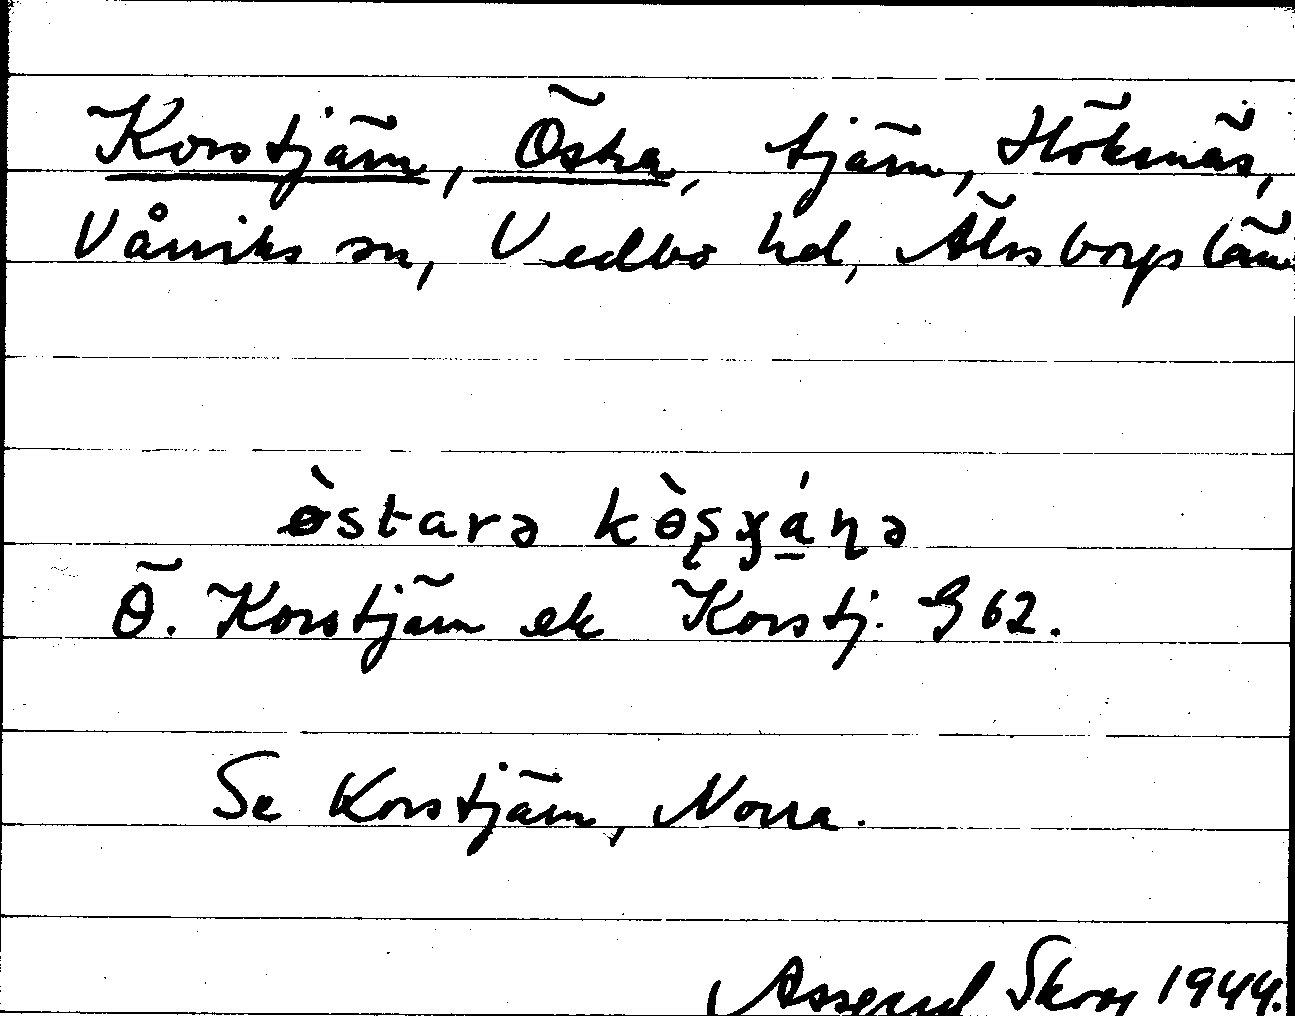 Korstjärn, Östra, tjärn, Höksnäs,
Vårviks sn, Vedbo hd, Älvsborgs län
ò̵starə kò̵ʂɣá̲ɳə
Ö. Korstjärn ek Korstj. G 62.
Se Korstjärn, Norra.
Asserud Skog 1944.